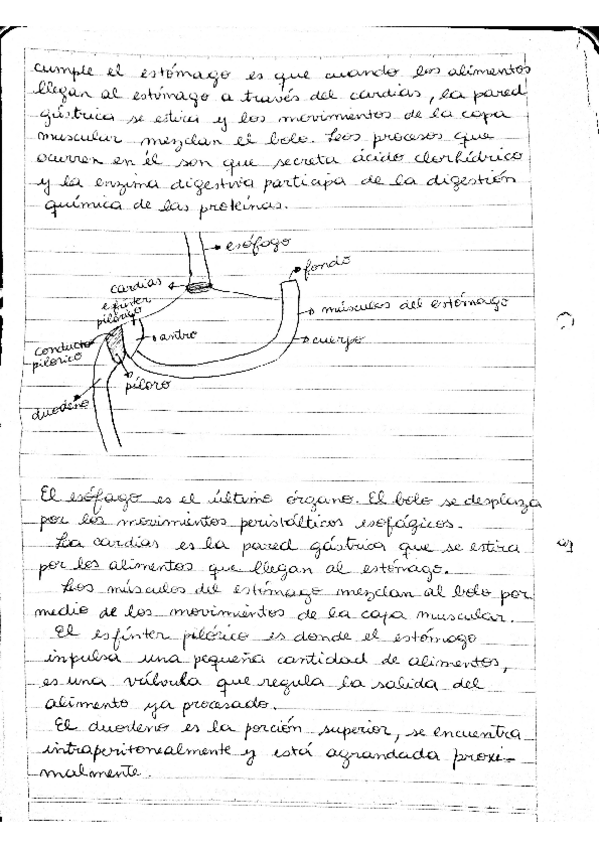 cumple el estómago es que cuando los alimentos
llegan al estómago a través del cardias, la pared
gástrica se estira y los movimientos de la capa
muscular mezclan el bolo. Los procesos que
ocurren en él son que secreta ácido clorhídrico
y la enzima digestiva participa de la digestión
química de las proteínas.
esófago
fondo
cardias
esfínter
pilórico
músculos del estómago
antro
cuerpo
conducto
pilórico
píloro
duodeno
El esófago es el último órgano. El bolo se desplaza
por los movimientos peristálticos esofágicos.
La cardias es la pared gástrica que se estira
por los alimentos que llegan al estómago.
Los músculos del estómago mezclan al bolo por
medio de los movimientos de la capa muscular.
El esfínter pilórico es donde el estómago
impulsa una pequeña cantidad de alimentos,
es una válvula que regula la salida del
alimento ya procesado.
El duodeno es la porción superior, se encuentra
intraperitonealmente y está agrandada proxi-
malmente.